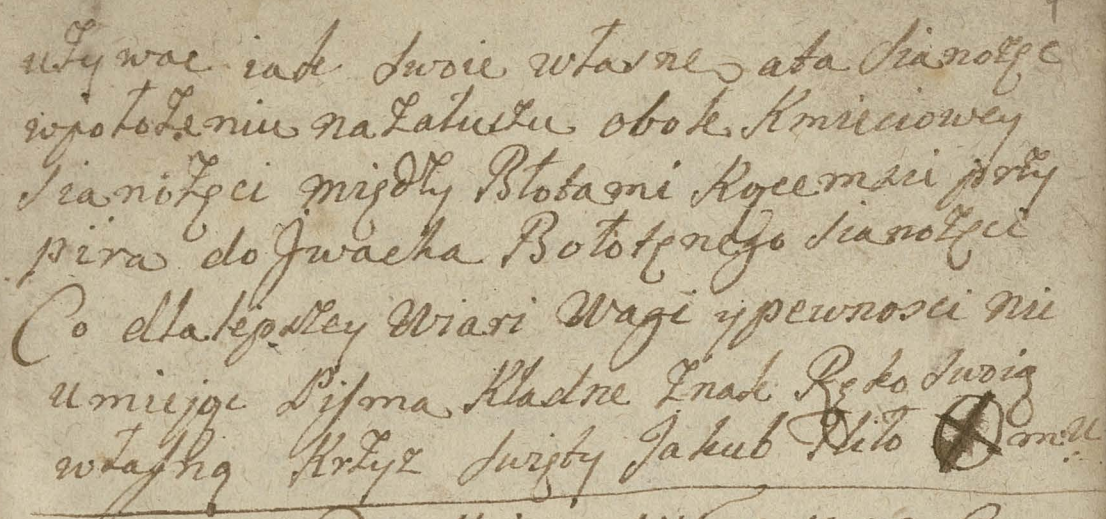 używac iak swoie własne, ata Sianożęc
wpołożeniu na Załuszu obok Kmieciowey
sianożęci między Błotami końcem przy
pira do Jwacha Bołotęnego sianożęci
Co dla lepszey Wiari Wagi y pewnosci nie
umiejąc Pisma Kładne Znak Ręko swoią
własną Krzyz swięty Jakub